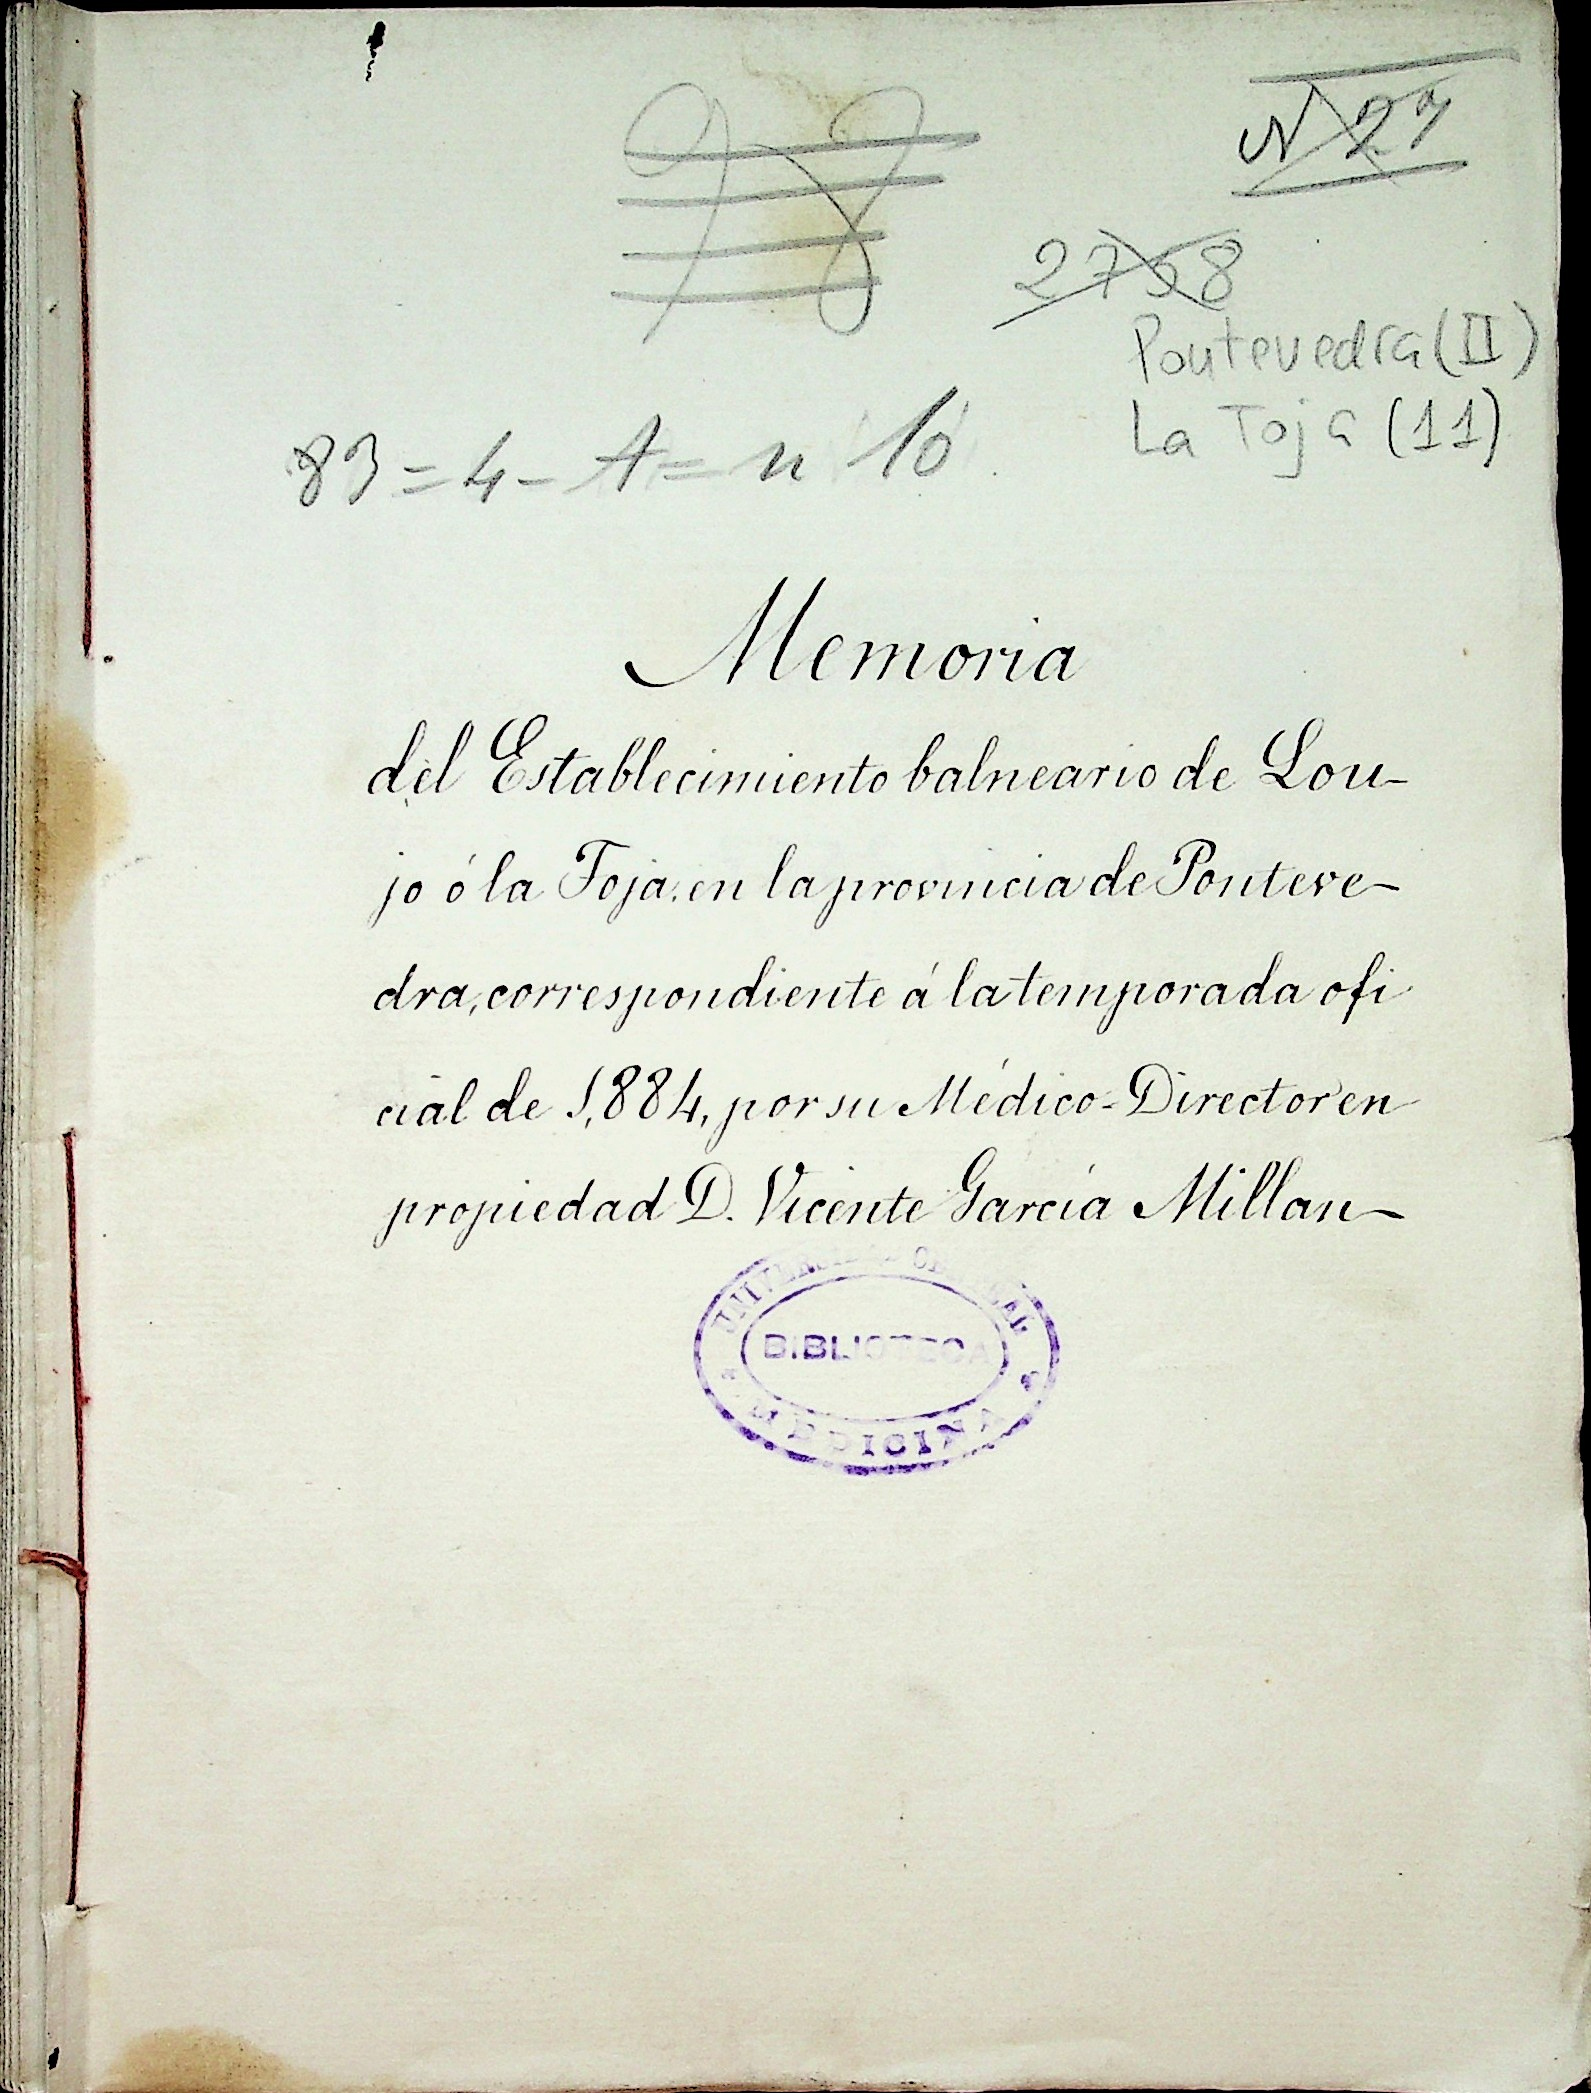 N 27
2758
Pontevedra (II)
La Toja (11)
83 = 4 - A = n 10
Memoria
del Establecimiento balneario de Lou-
jo ó la Toja, en la provincia de Ponteve-
dra, correspondiente á la temporada ofi
cial de 1,884, por su Médico-Director en
propiedad D. Vicente García Millan
UNIVERSIDAD CENTRAL
BIBLIOTECA
MEDICINA